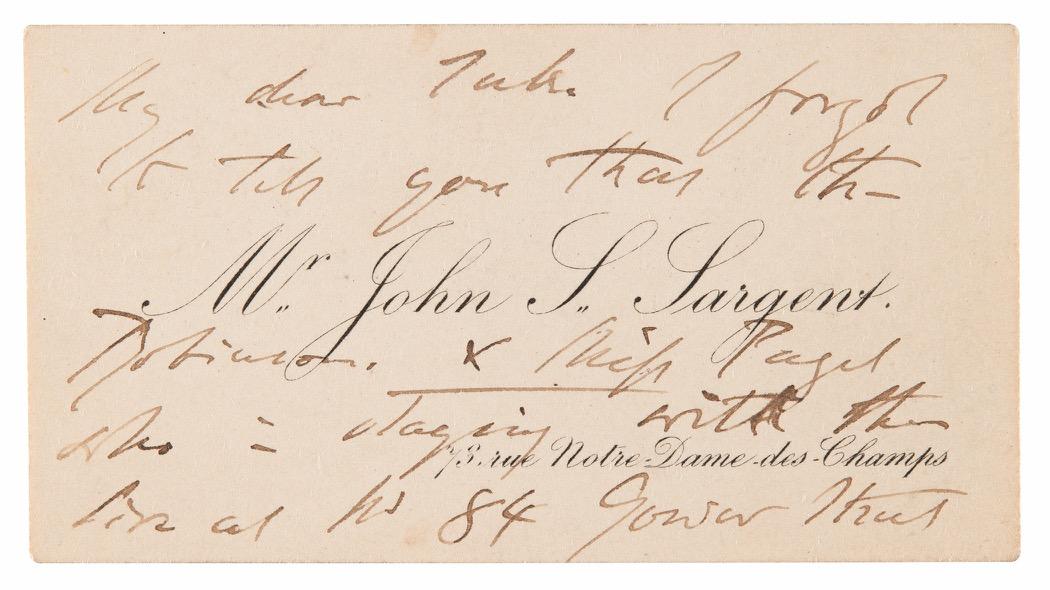 My dear Tuke I forgot
to tell you that the
Mr. John S. Sargent.
Robinsons. & Miss Paget
who is staying with them
73. rue Notre-Dame-des-Champs
live at No 84 Gower Street